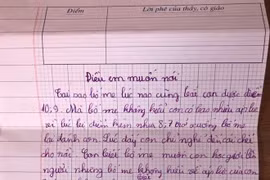 Điểm
Lời phê của thầy, cô giáo
Điều em muốn nói
Tại sao bố mẹ lúc nào cũng bắt con được điểm
10, 9. Mà bố mẹ không hiểu con có bao nhiêu áp lực
và lúc bị điểm kém như 8, 7 trở xuống bố mẹ
lại đánh con. Lúc đấy con chỉ nghĩ đến cái chết
cho rồi. Con biết bố mẹ muốn con học giỏi bằng
người nhưng bố mẹ không hiểu về áp lực của con